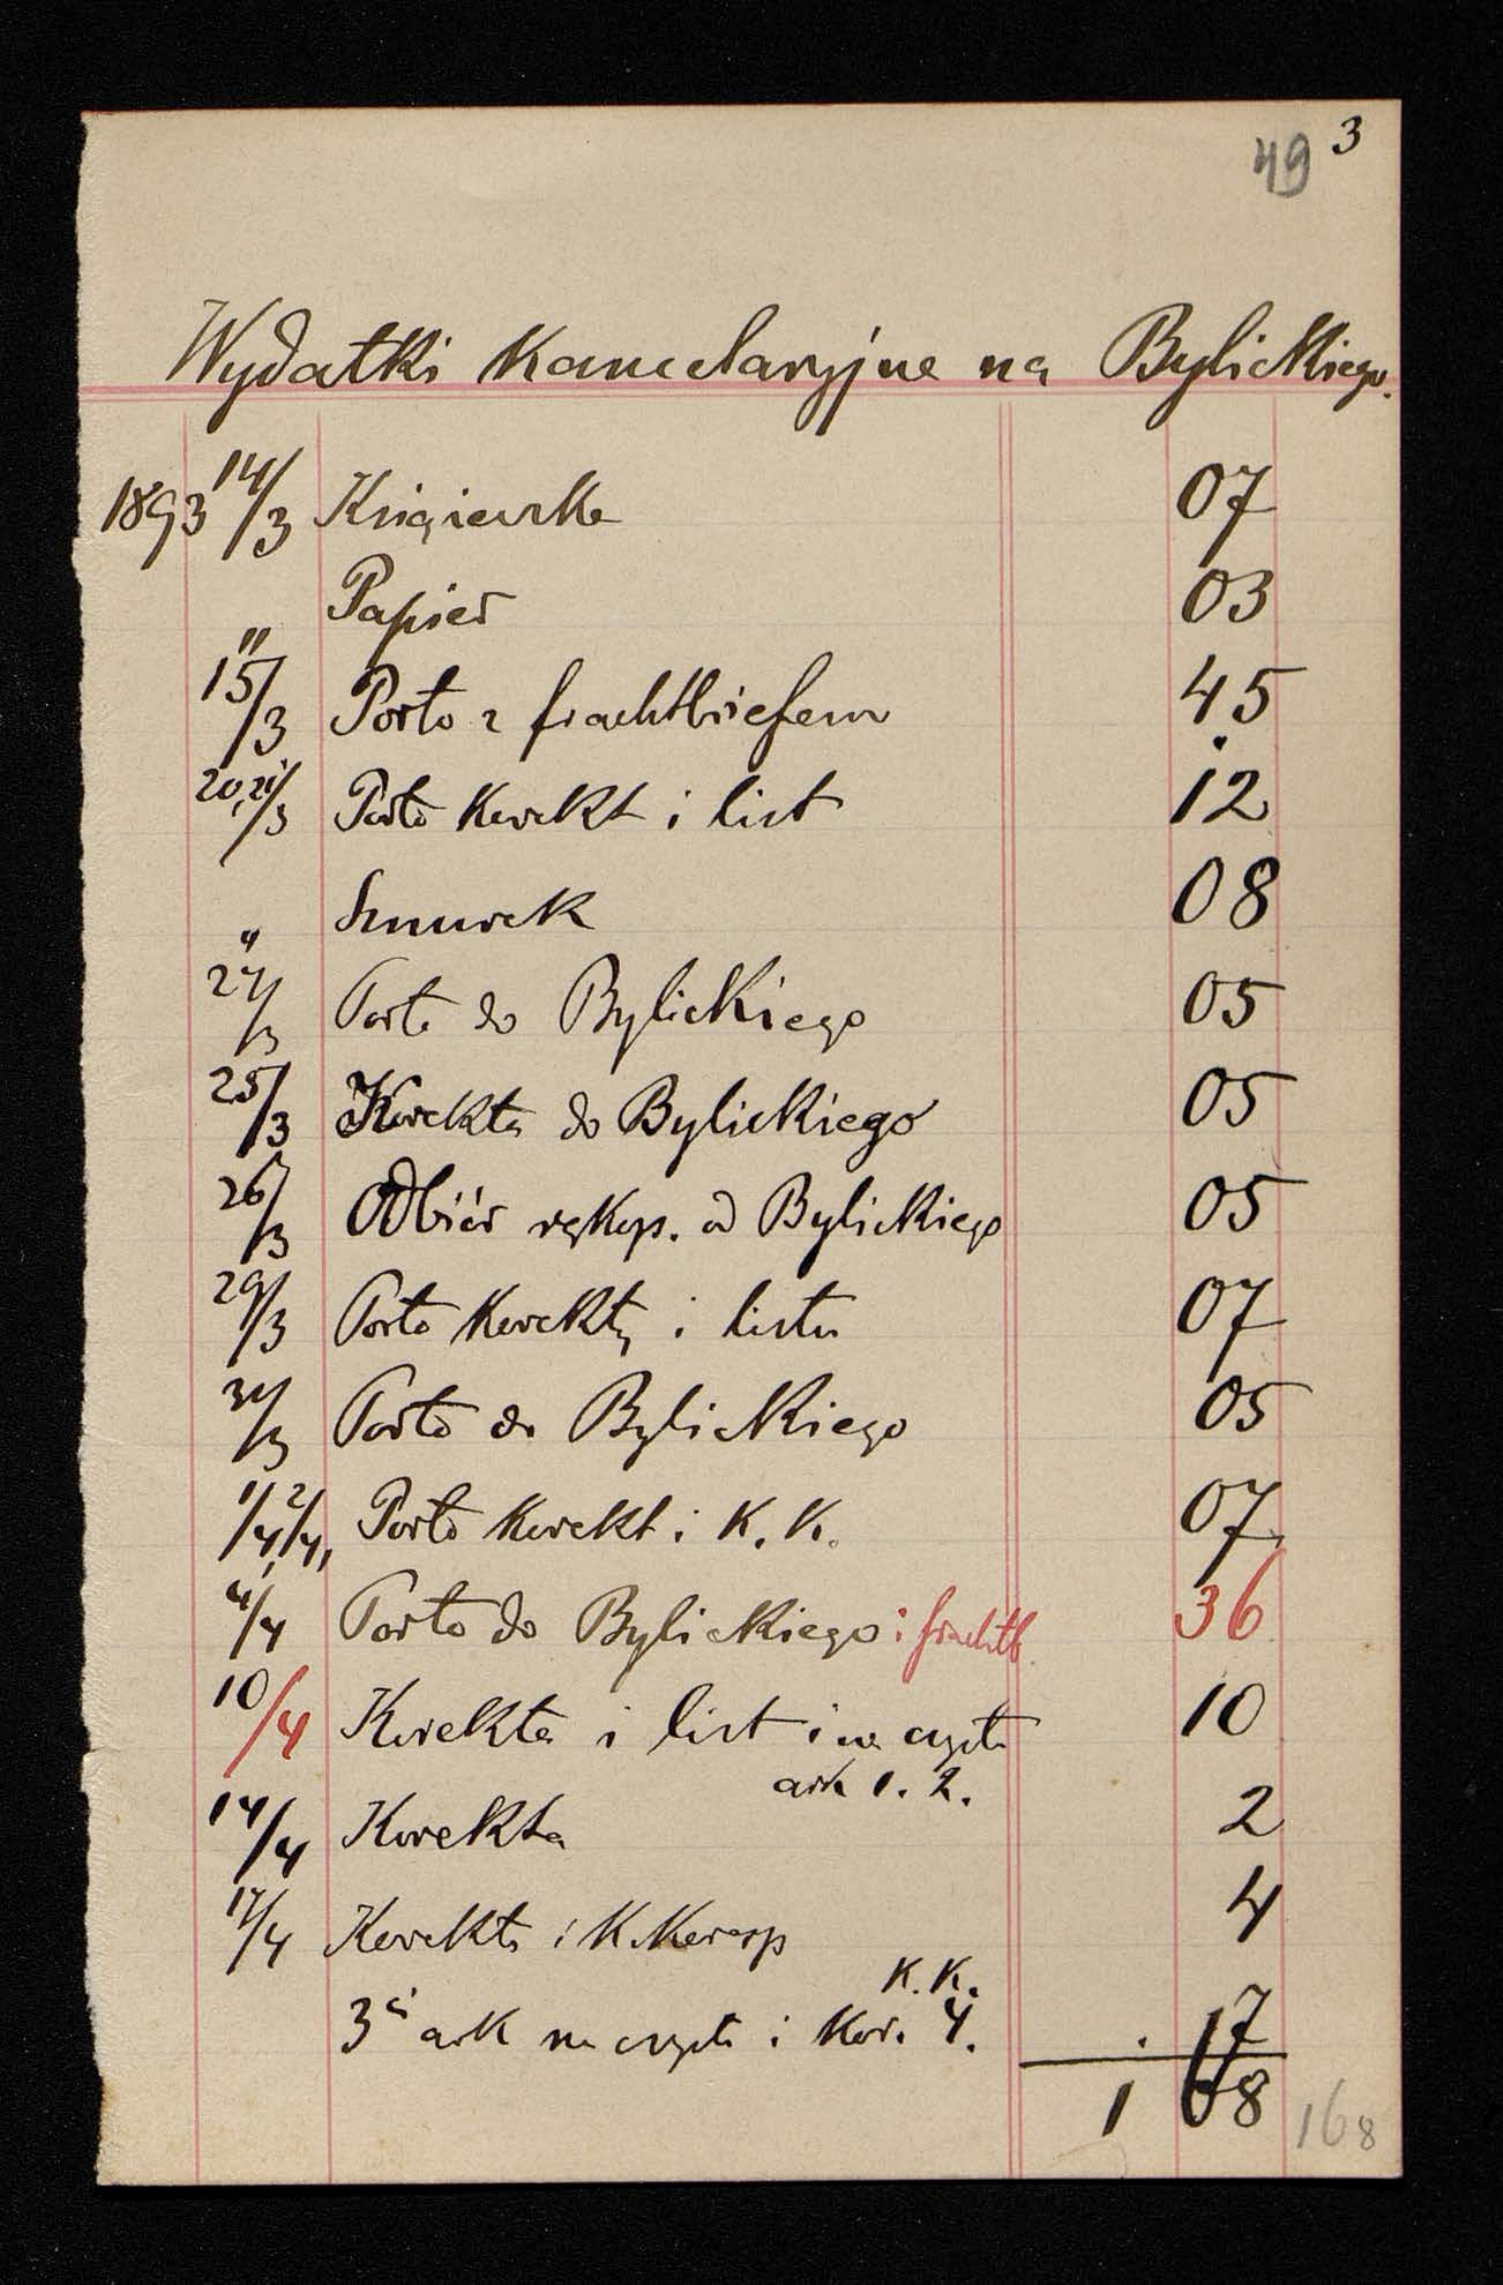 49 3
Wydatki Kancelaryjne na Bylickiego.
1893 14/3 Książeczka 07
" Papier 03
15/3 Porto z frachtbriefem 45
20,21/3 Porto Korekt i list 12
" Sznurek 08
24/3 Porto do Bylickiego 05
25/3 Korekta do Bylickiego 05
26/3 Odbiór rękop. od Bylickiego 05
29/3 Porto Korekty i listu 07
31/3 Porto do Bylickiego 05
1/4, 2/4, Porto Korekt i K. K. 07
4/4 Porto do Bylickiego i frachtb. 36
10/4 Korekta i list i na czysto 10
ark 1. 2.
14/4 Korekta 2
17/4 Korekta i K. Koresp 4
K. K.
3ci ark na czysto i Kor. 4. 17
1 68 168